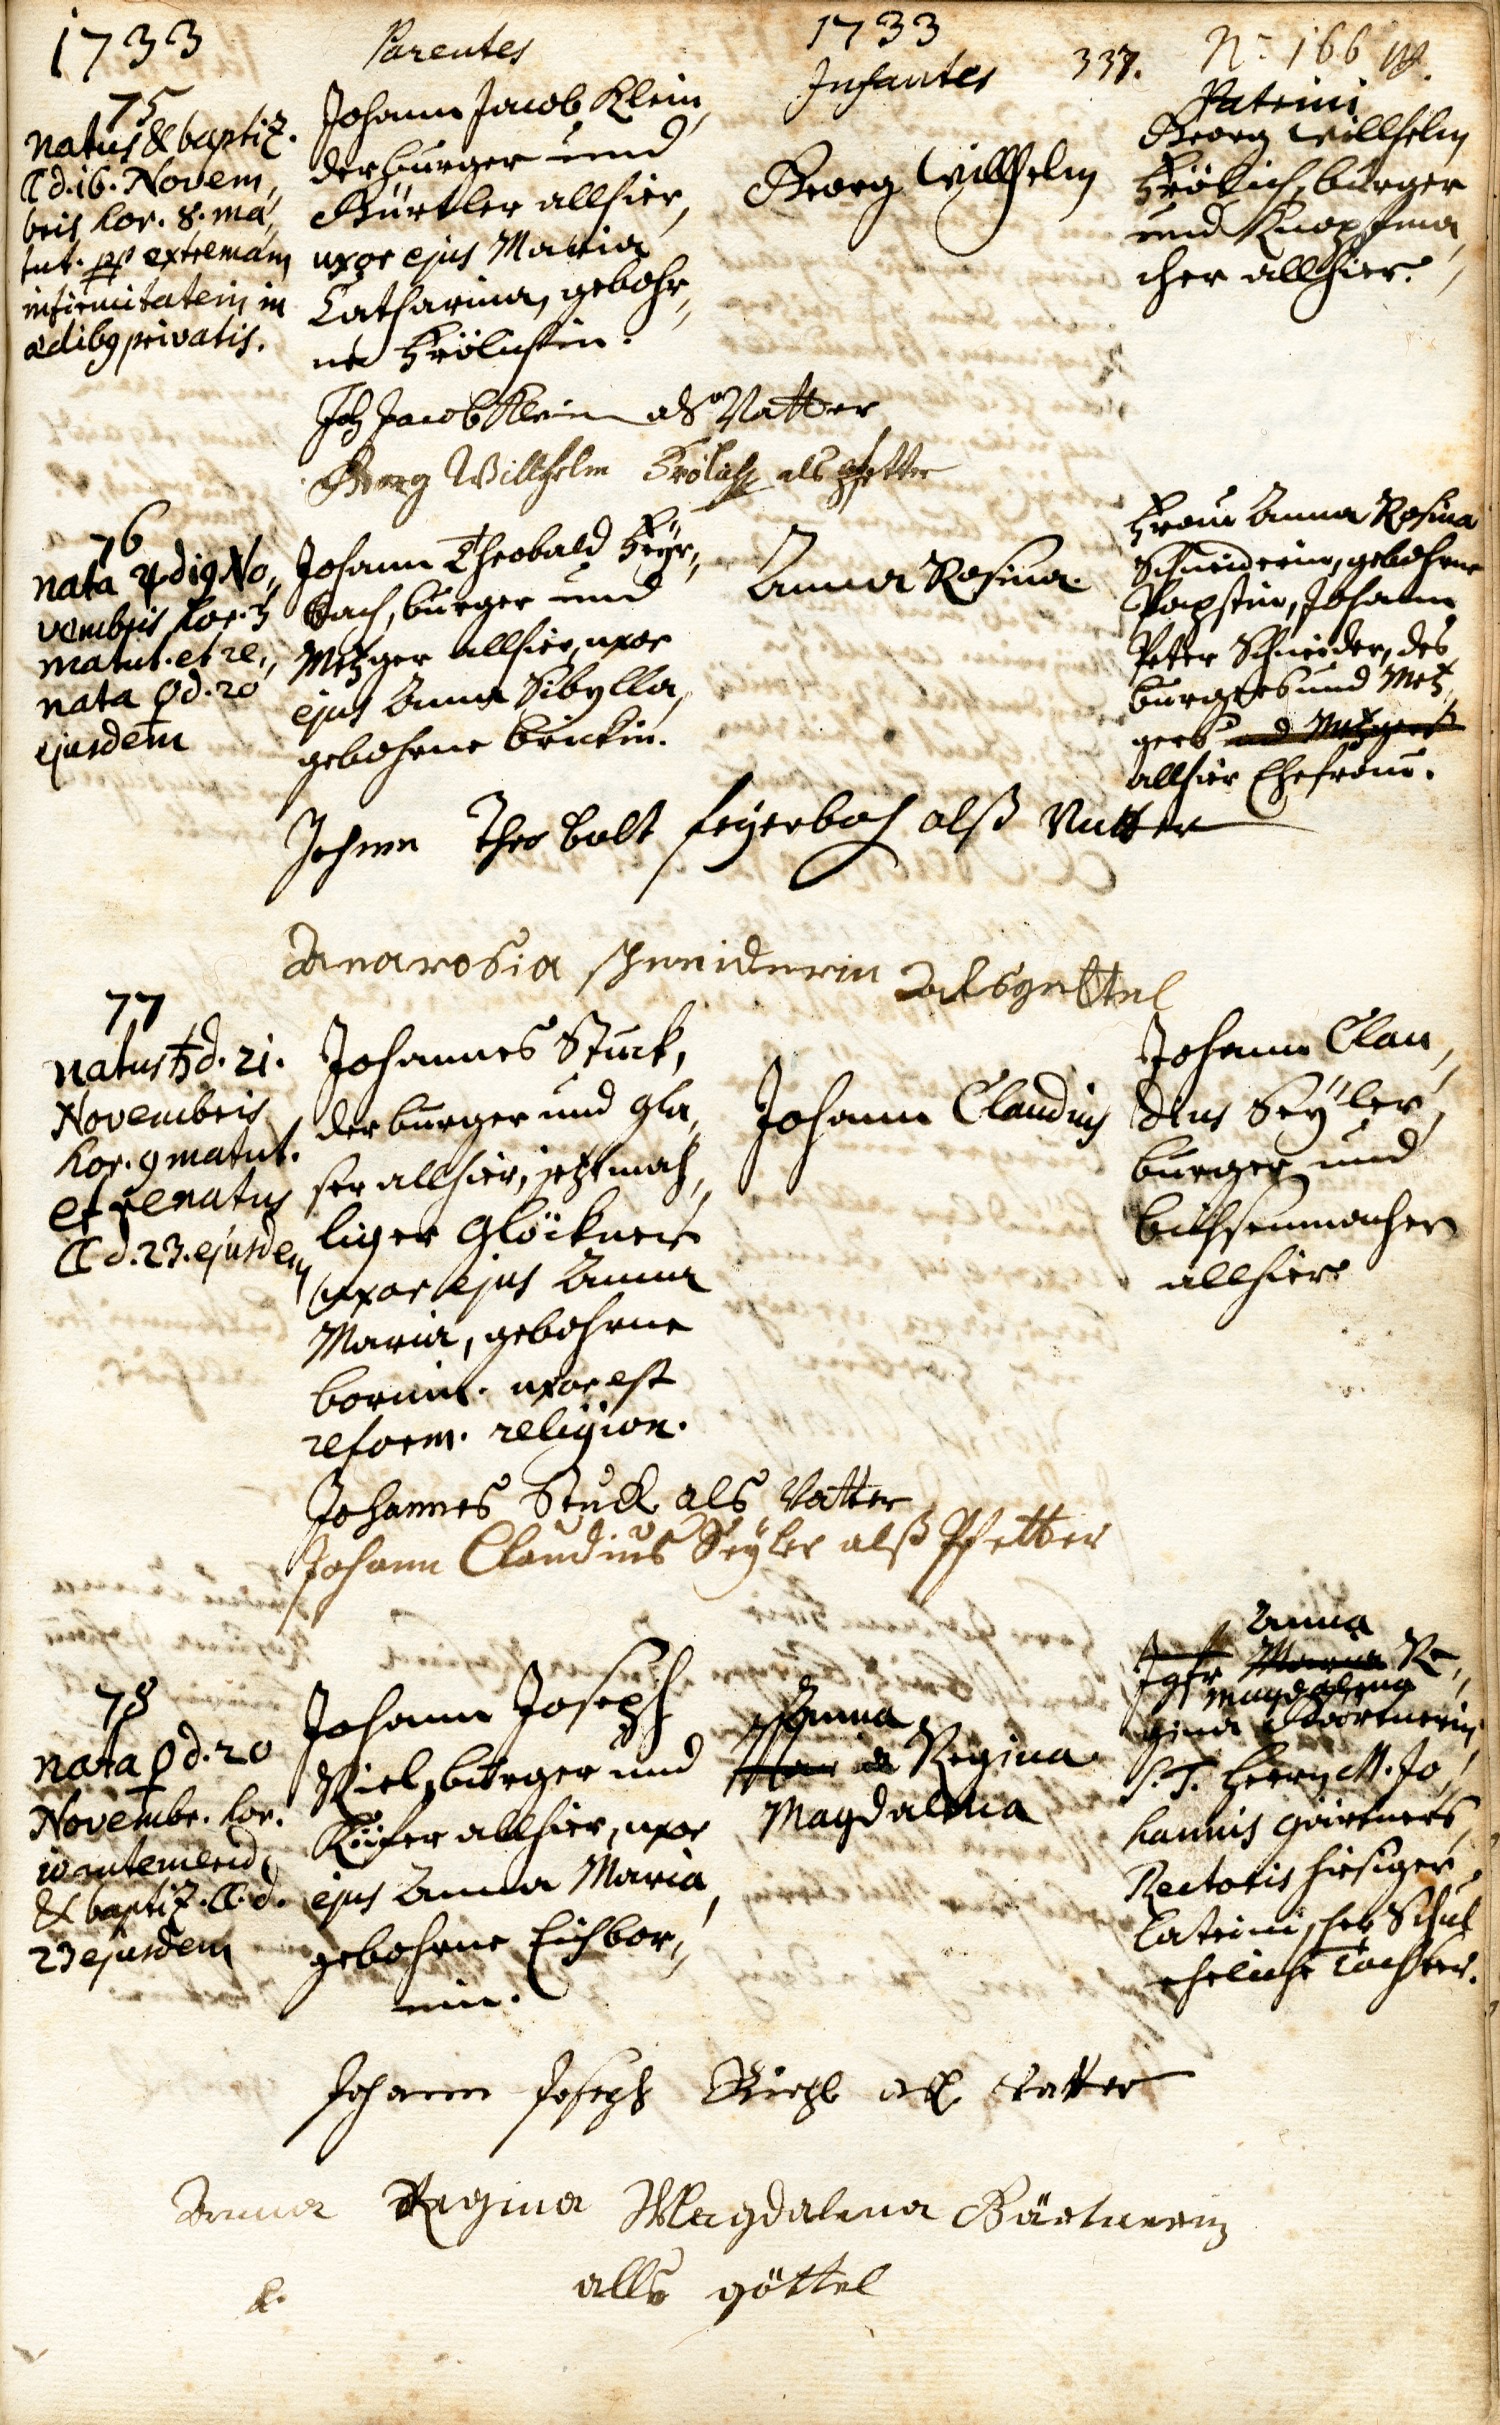 1733
Parentes
1733
Infantes
337.
No. 166
Patrini
75
natus & baptiz.
☾ d. 16. Novem,,
bris hor. 8. ma,,
tut. pp extremam
infirmitatem in
ædibg privatis.
Johann Jacob Klein,
der burger und
Gürtler allhier,
uxor ejus Maria
Catharina, gebohr,,
ne Frölichin.
Georg Willhelm
Georg Willhelm
Frölich, burger
und Knopffma,,
cher allhier.
Joh Jacob Klein als Vatter
Georg Willhelm Frölich als Pfetter
76
nata ♃ d 19 No,,
vembris hor. 3
matut. et re,,
nata ♀ d. 20
ejusdem
Johann Theobald Feyr,,
bach, burger und
Metzger allhier, uxor
ejus Anna Sibylla,
gebohrne Brickin.
Anna Rosina.
Frau Anna Rosina
Schneiderin, gebohrne
Papstin, Johann
Peter Schneider, des
burgers und Metz,,
gers und Metzgers
allhier Ehefrau.
Johann Theobalt feyerbach alß Vatter
Anarosia schneiderin Als gettel
77
natus ♄ d. 21.
Novembris
hor. 9 matut.
et renatus
☾ d. 23. ejusdem
Johannes Stuck,
der burger und Gla,,
ser allhier, jetztmah,,
liger Glöckner
uxor ejus Anna
Maria, gebohrne
bornin. uxor est
reform. religion.
Johann Claudius
Johann Clau,,
dius Seyler,
burger und
büchsenmacher
allhier
Johannes Stuck als Vatter
Johann Claudius Seyler alß Pfetter
78
nata ♀ d. 20
Novembr. hor.
10 antemerid.
& baptiz. ☾ d.
23 ejusdem
Johann Joseph
Riel, burger und
Küfer allhier, uxor
ejus Anna Maria,
gebohrne Eichbor,,
nin.
Anna
Regina
Magdalena
Anna
Jgfr Maria Re,,
Magdalena
gina Gärtnerin,
S. T. Herrn M. Jo,,
hannis Gärtners,
Rectoris hiesiger
Lateinischer Schul
eheliche Tochter.
Johann Joseph Riehl als Vatter
Anna Regina Magdalena Gärtnerin
alls göttel